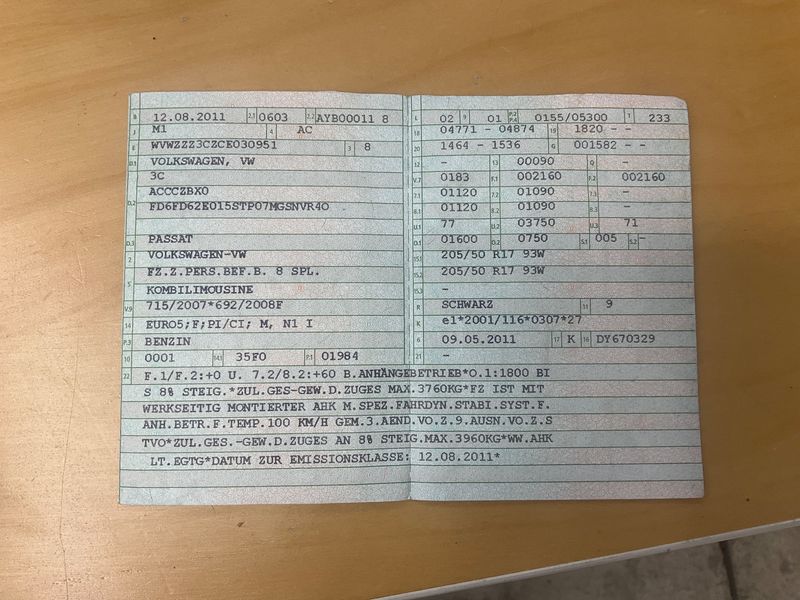 B 12.08.2011 2.1 0603 2.2 AYB00011 8
J M1 4 AC
E WVWZZZ3CZCE030951 3 8
D.1 VOLKSWAGEN, VW
3C
D.2 ACCCZBX0
FD6FD62E015STP07MGSNVR40
D.3 PASSAT
2 VOLKSWAGEN-VW
5 FZ.Z.PERS.BEF.B. 8 SPL.
KOMBILIMOUSINE
V.9 715/2007*692/2008F
14 EURO5;F;PI/CI; M, N1 I
P.3 BENZIN
10 0001 14.1 35F0 P.1 01984
L 02 9 01 P.2 P.4 0155/05300 T 233
18 04771 - 04874 19 1820 - -
20 1464 - 1536 G 001582 - -
12 - 13 00090 Q -
V.7 0183 F.1 002160 F.2 002160
7.1 01120 7.2 01090 7.3 -
8.1 01120 8.2 01090 8.3 -
U.1 77 U.2 03750 U.3 71
O.1 01600 O.2 0750 S.1 005 S.2 -
15.1 205/50 R17 93W
15.2 205/50 R17 93W
15.3 -
R SCHWARZ 11 9
K e1*2001/116*0307*27
6 09.05.2011 17 K 16 DY670329
21 -
22 F.1/F.2:+0 U. 7.2/8.2:+60 B.ANHÄNGEBETRIEB*O.1:1800 BI
S 8% STEIG.*ZUL.GES-GEW.D.ZUGES MAX.3760KG*FZ IST MIT
WERKSEITIG MONTIERTER AHK M.SPEZ.FAHRDYN.STABI.SYST.F.
ANH.BETR.F.TEMP.100 KM/H GEM.3.AEND.VO.Z.9.AUSN.VO.Z.S
TVO*ZUL.GES.-GEW.D.ZUGES AN 8% STEIG.MAX.3960KG*WW.AHK
LT.EGTG*DATUM ZUR EMISSIONSKLASSE: 12.08.2011*